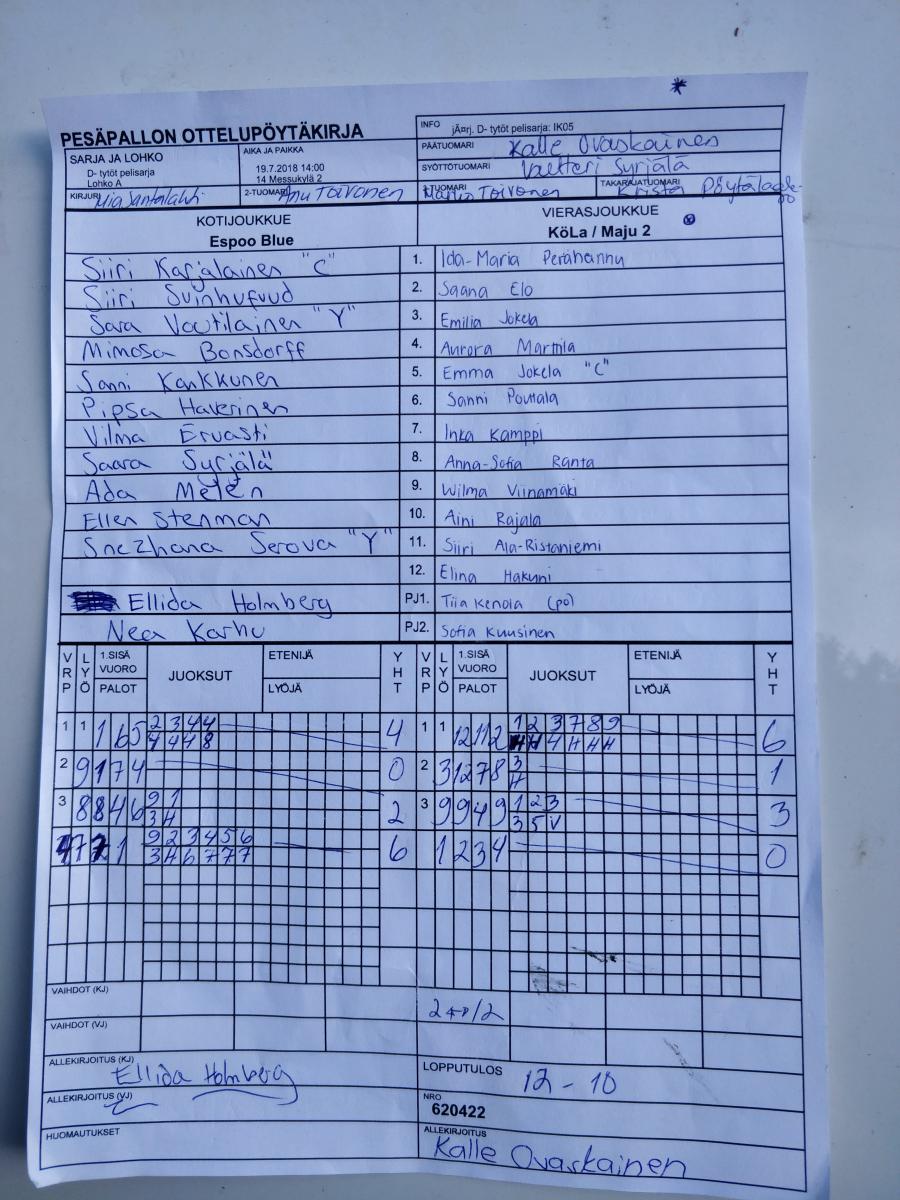 *
PESÄPALLON OTTELUPÖYTÄKIRJA
INFO jÃ¤rj. D- tytöt pelisarja: IK05
SARJA JA LOHKO
D- tytöt pelisarja
Lohko A
AIKA JA PAIKKA
19.7.2018 14:00
14 Messukylä 2
PÄÄTUOMARI Kalle Ovaskainen
SYÖTTÖTUOMARI Valtteri Syrjälä
KIRJURI Mia Santalahti
2-TUOMARI Anu Toivonen
3-TUOMARI Marko Toivonen
TAKARAJATUOMARI Krista
KOTIJOUKKUE
Espoo Blue
VIERASJOUKKUE
KöLa / Maju 2
Siiri Karjalainen "C" 1. Ida-Maria Perähannu
Siiri Svinhufvud 2. Saana Elo
Sara Voutilainen "Y" 3. Emilia Jokela
Mimosa Bonsdorff 4. Aurora Marttila
Sanni Kankkunen 5. Emma Jokela "C"
Pipsa Haverinen 6. Sanni Pouttala
Vilma Ervasti 7. Inka Kamppi
Saara Syrjälä 8. Anna-Sofia Ranta
Ada Melén 9. Wilma Viinamäki
Ellen Stenman 10. Aini Rajala
Snezhana Serova "Y" 11. Siiri Ala-Ristaniemi
12. Elina Hakuni
Ellida Holmberg PJ1. Tiia Kenola (po)
Nea Karhu PJ2. Sofia Kuusinen
VRP LYÖ 1.SISÄ VUORO PALOT JUOKSUT ETENIJÄ LYÖJÄ YHT VRP LYÖ 1.SISÄ VUORO PALOT JUOKSUT ETENIJÄ LYÖJÄ YHT
1 1 1 6 5 2 3 4 4 4 1 1 12 11 2 1 2 3 7 8 9 6
4 4 4 8 4 4 4 4 4 4
2 9 1 7 4 0 2 3 12 7 8 3 1
4
3 8 8 4 6 9 1 2 3 9 9 4 9 1 2 3 3
3 4 3 5 V
4 7 7 2 1 9 2 3 4 5 6 6 1 2 3 4 0
3 4 6 7 7 7
VAIHDOT (KJ)
VAIHDOT (VJ)
ALLEKIRJOITUS (KJ) Ellida Holmberg
LOPPUTULOS 12 - 10
ALLEKIRJOITUS (VJ)
NRO
620422
HUOMAUTUKSET
ALLEKIRJOITUS
Kalle Ovaskainen